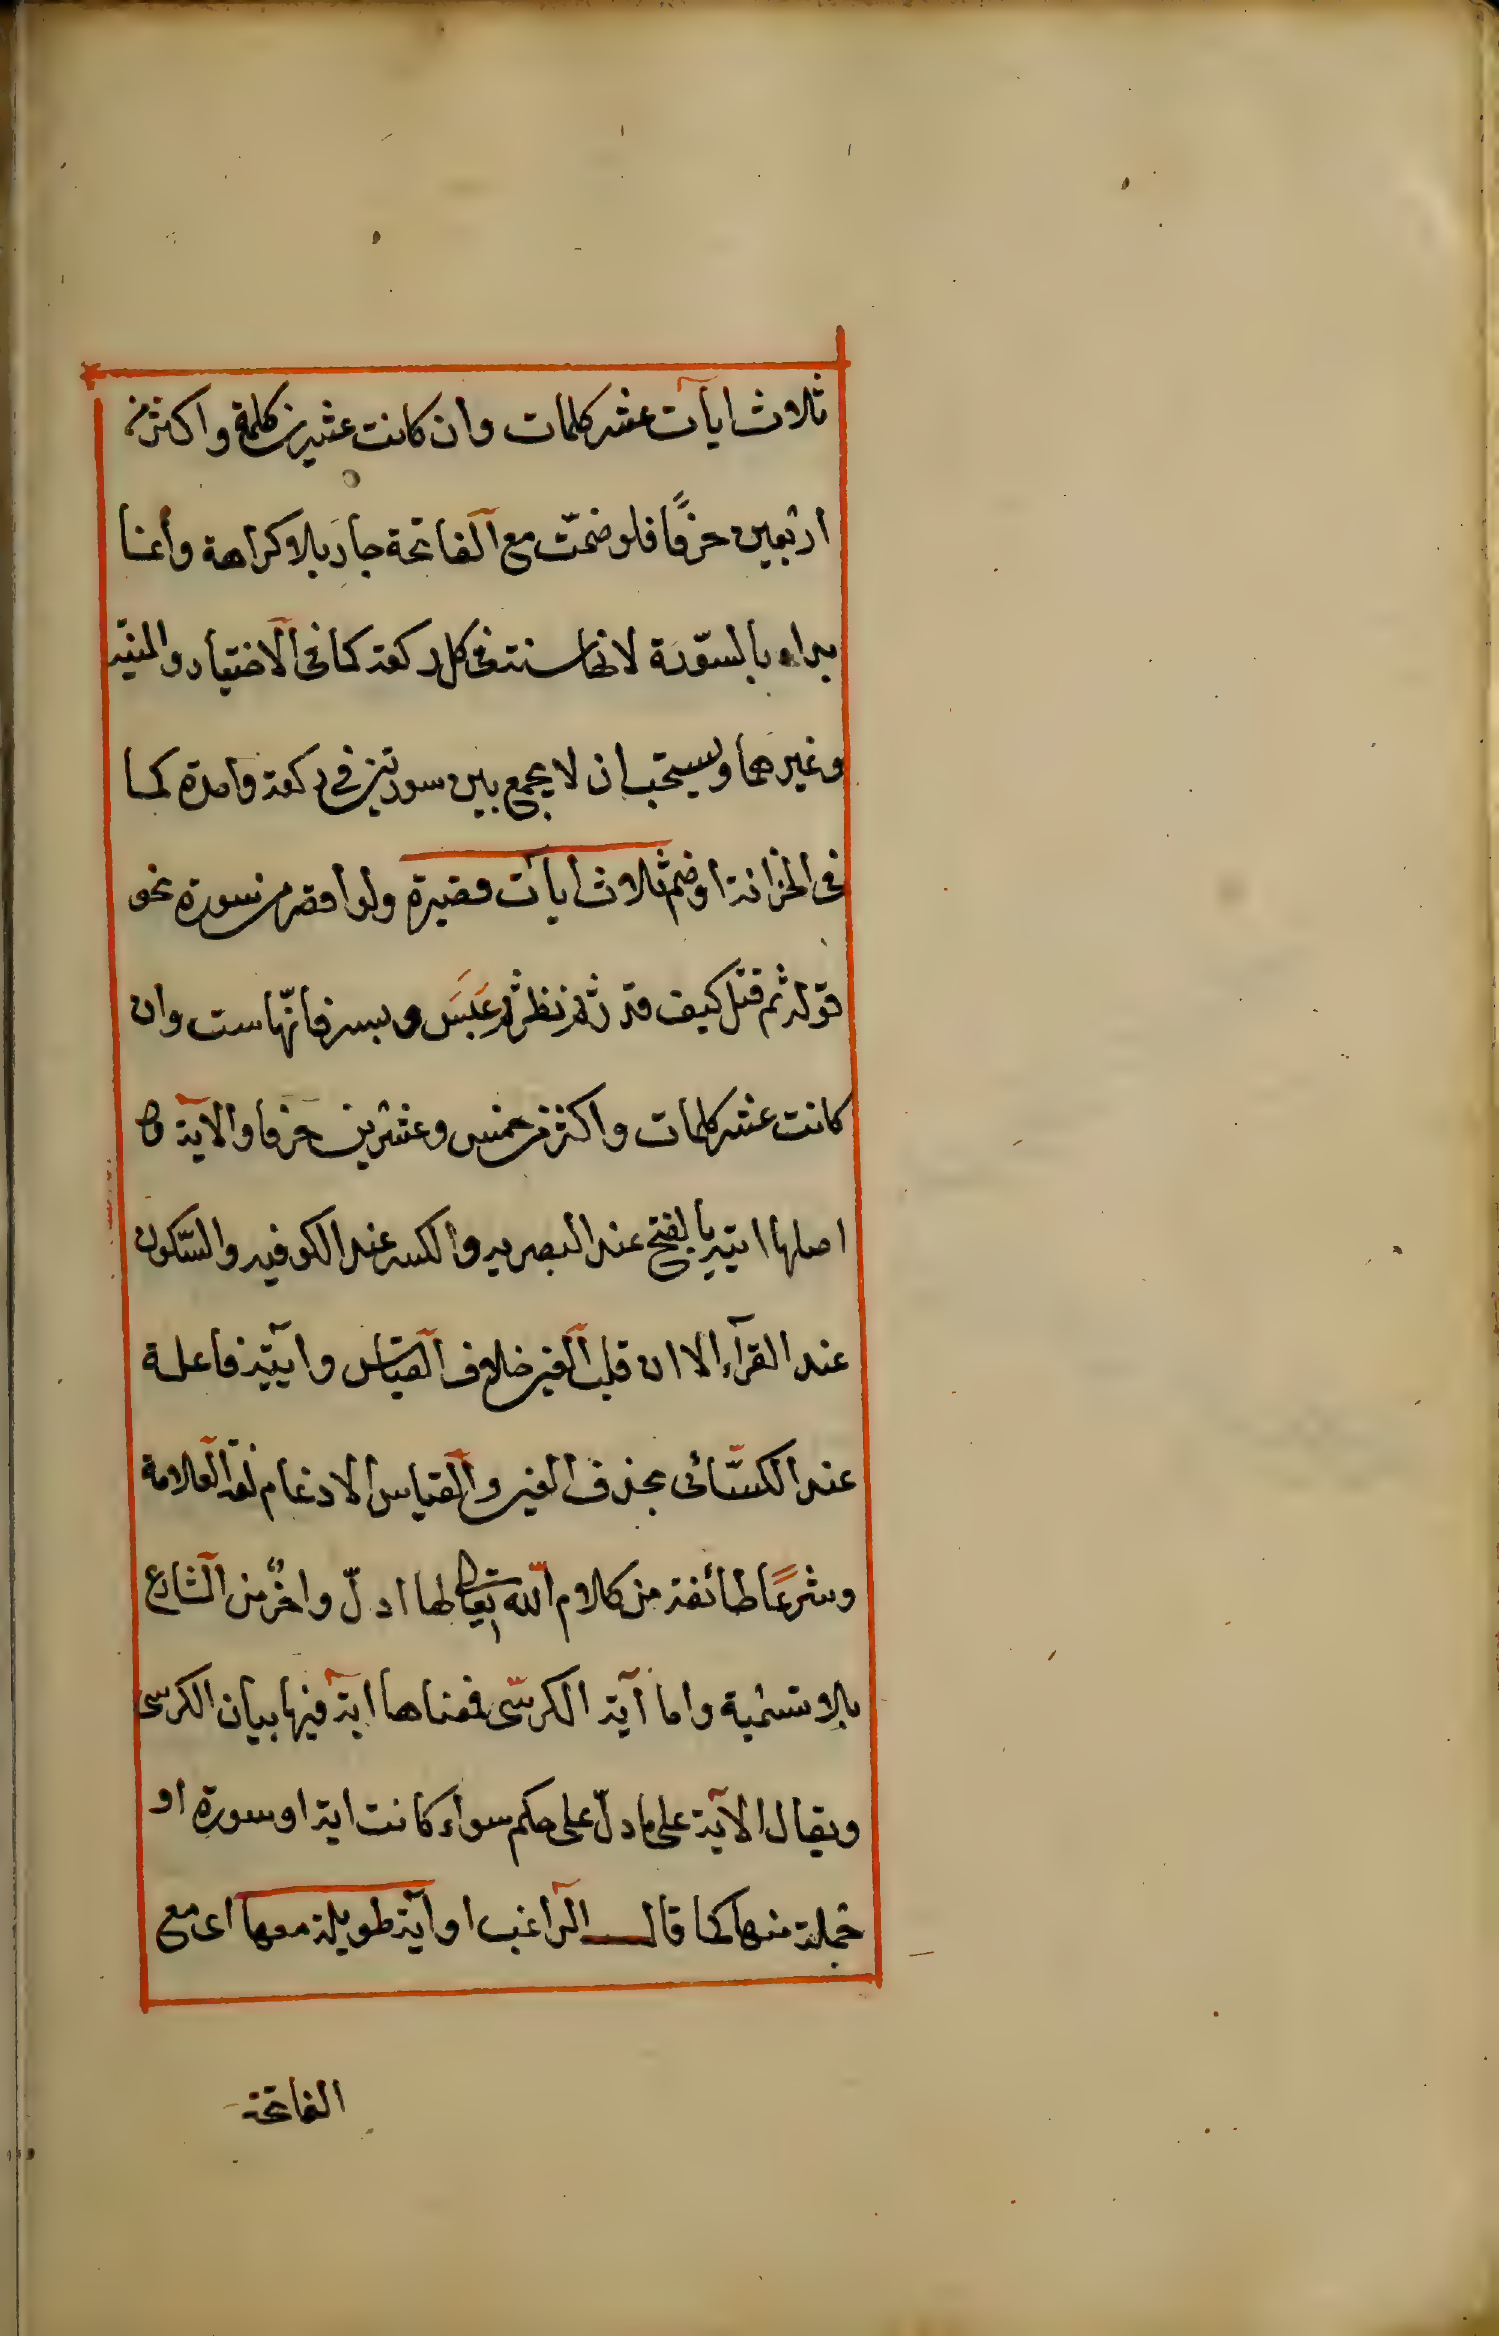 ثلاث ايآت عشر كلمات وان كانت عشرين كلمة واكثر من
اربعين حرفًا فلو ضمّت مع الفاتحة جاز بلا كراهة وانما
بداء بالسّورة لانها سنة فى كل ركعة كما فى الاختيار والمنية
وغيرهما ويستحب ان لا يجمع بين سورتين فى ركعة واحدة كما
فى الخزانة او ضم ثلاث ايآت قصيرة ولو اقصر من سورة نحو
قوله ثم قتل كيف قدر ثم نظر ثم عَبَسَ وبسر فانّها ست وان
كانت عشر كلمات واكثر من خمس وعشرين حرفا والآية
اصلها اييه بالفتح عند البصريه والكسر عند الكوفيه والسّكون
عند القرآء الا ان قلب العين خلاف القياس وآيية فاعلة
عند الكسّائى بحذف العين والقياس الادغام العلامة
وشرعًا طائفة من كلام اللّه تعالى لها اول وآخر من الشارع
بلا تسمية واما آية الكرسّى فمعناها آية فيها بيان الكرسى
ويقال الآية على ما دلّ على حكم سواء كانت اية او سورة او
جملة منها كما قال الراغب او آية طويلة معها اى مع
الفاتحة